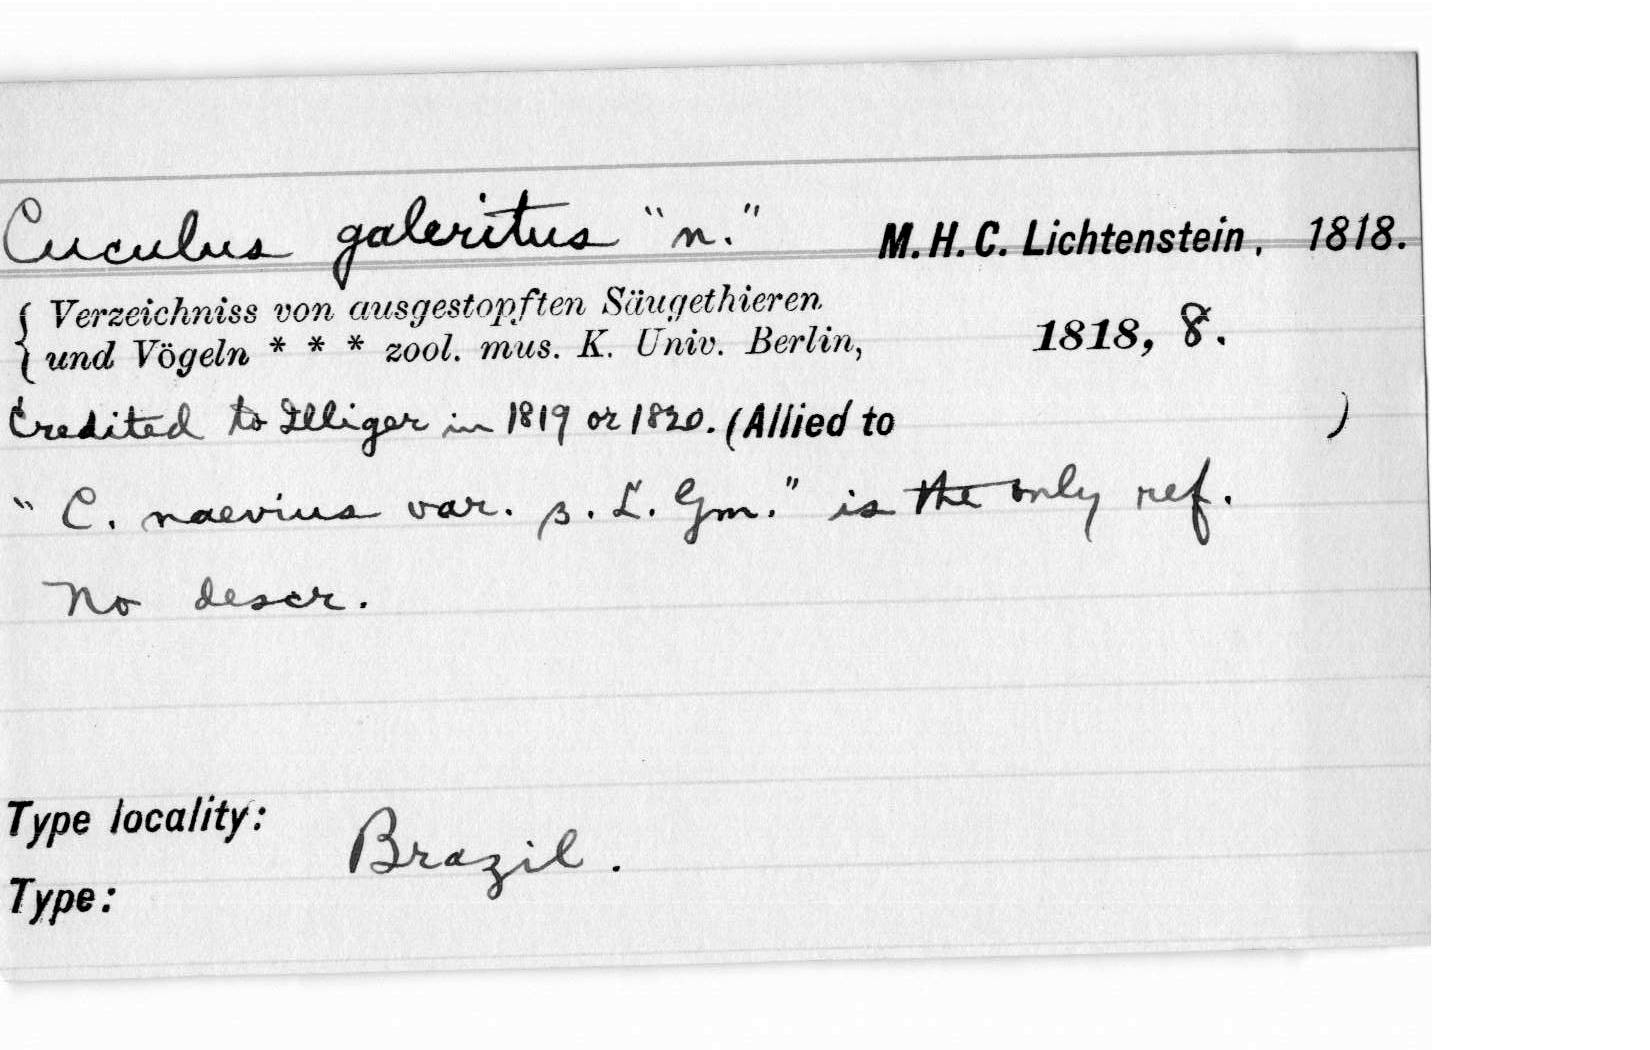 Cuculus galeritus "n." M. H. C. Lichtenstein, 1818.
{ Verzeichniss von ausgestopften Säugethieren
und Vögeln * * * zool. mus. K. Univ. Berlin, 1818, 8.
Credited to Illiger in 1819 or 1820. (Allied to )
"C. naevius var. β. L. Gm." is the only ref.
No descr.
Type locality: Brazil.
Type: